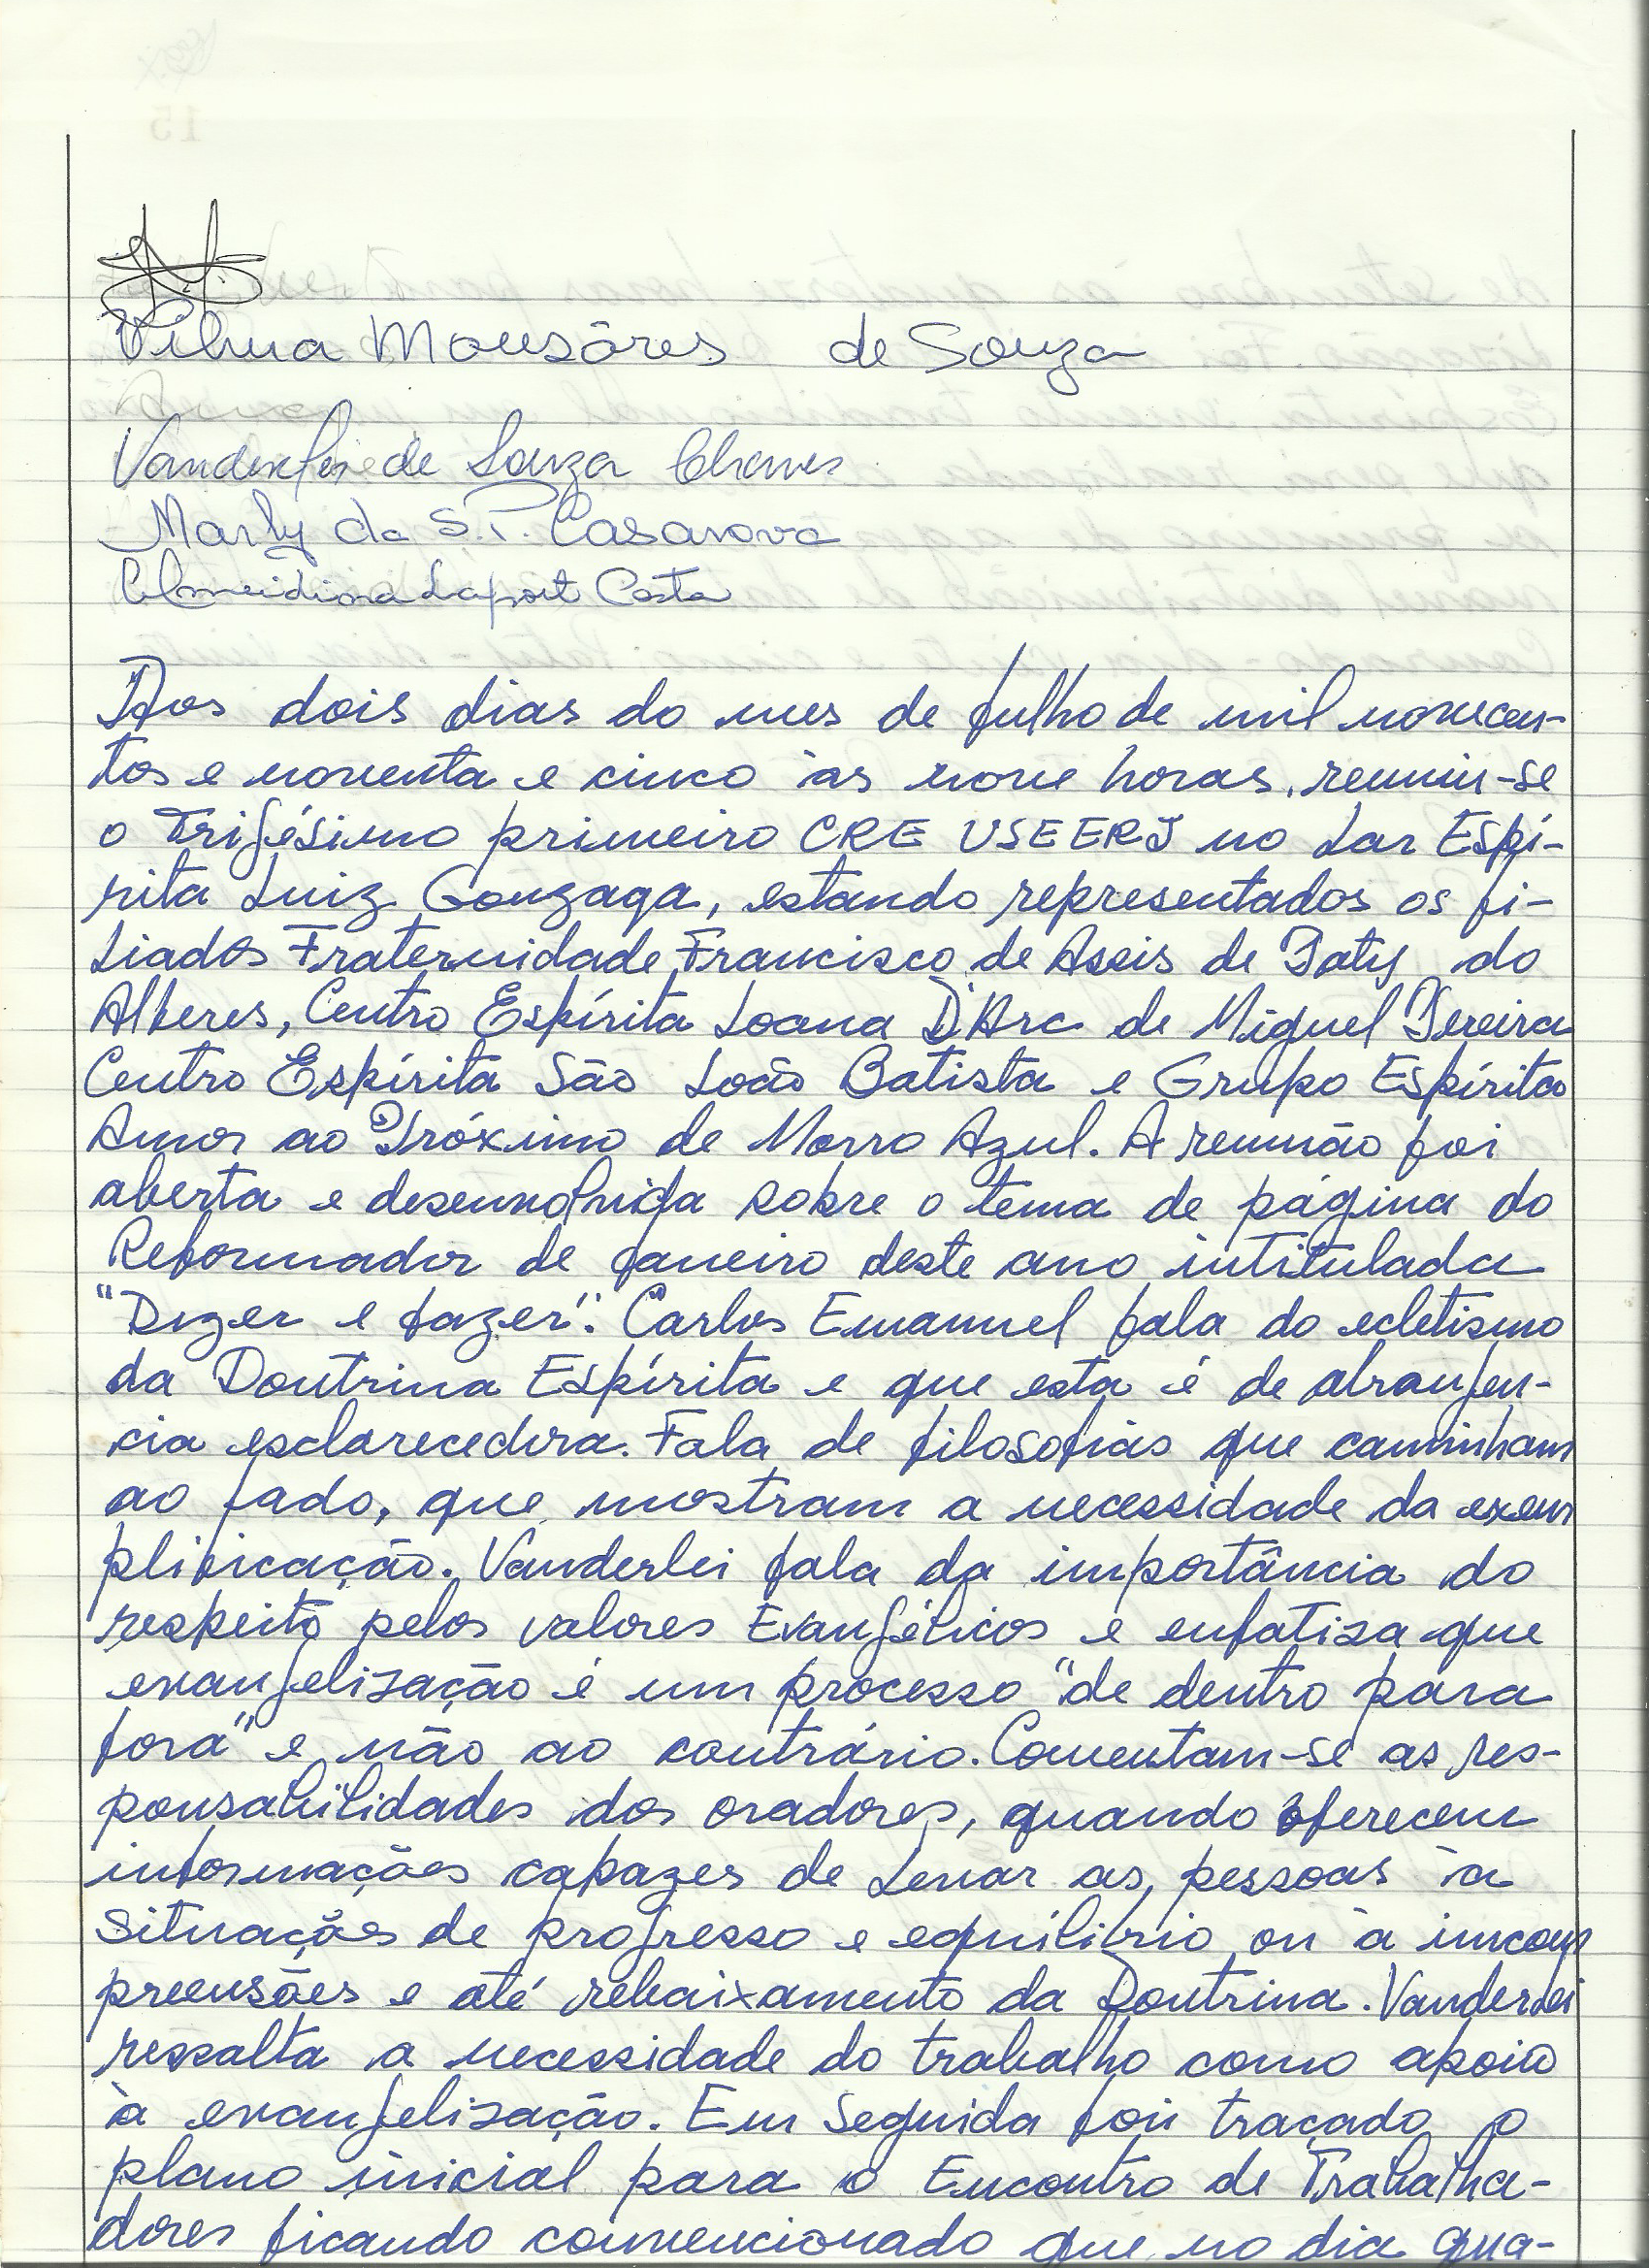 Vilma Monsôres de Souza
Vanderlei de Souza Chaves
Marly da S. P. Casanova
Almeidiana Laport Costa
Aos dois dias do mes de julho de mil novecen-
tos e noventa e cinco às nove horas, reuniu-se
o Trigésimo primeiro CRE USEERJ no Lar Espí-
rita Luiz Gonzaga, estando representados os fi-
liados Fraternidade Francisco de Assis de Paty do
Alferes, Centro Espírita Joana D'Arc de Miguel Pereira
Centro Espírita São João Batista e Grupo Espírita
Amor ao Próximo de Morro Azul. A reunião foi
aberta e desenvolvida sobre o tema de página do
Reformador de janeiro deste ano intitulada
"Dizer e fazer". Carlos Emannel fala do ecletismo
da Doutrina Espírita e que esta é de abrangen-
cia esclarecedora. Fala de filosofias que caminham
ao lado, que mostram a necessidade da exem
plificação. Vanderlei fala da importância do
respeito pelos valores Evangélicos e enfatiza que
evangelização é um processo "de dentro para
fora" e não ao contrário. Comentam-se as res-
ponsabilidades dos oradores, quando oferecem
informações capazes de levar as pessoas à
situações de progresso e equilíbrio ou à imcom
preensões e até rebaixamento da Doutrina. Vanderlei
ressalta a necessidade do trabalho como apoio
à evangelização. Em seguida foi traçado o
plano inicial para o Encontro de Trabalha-
dores ficando convencionado que no dia qua-